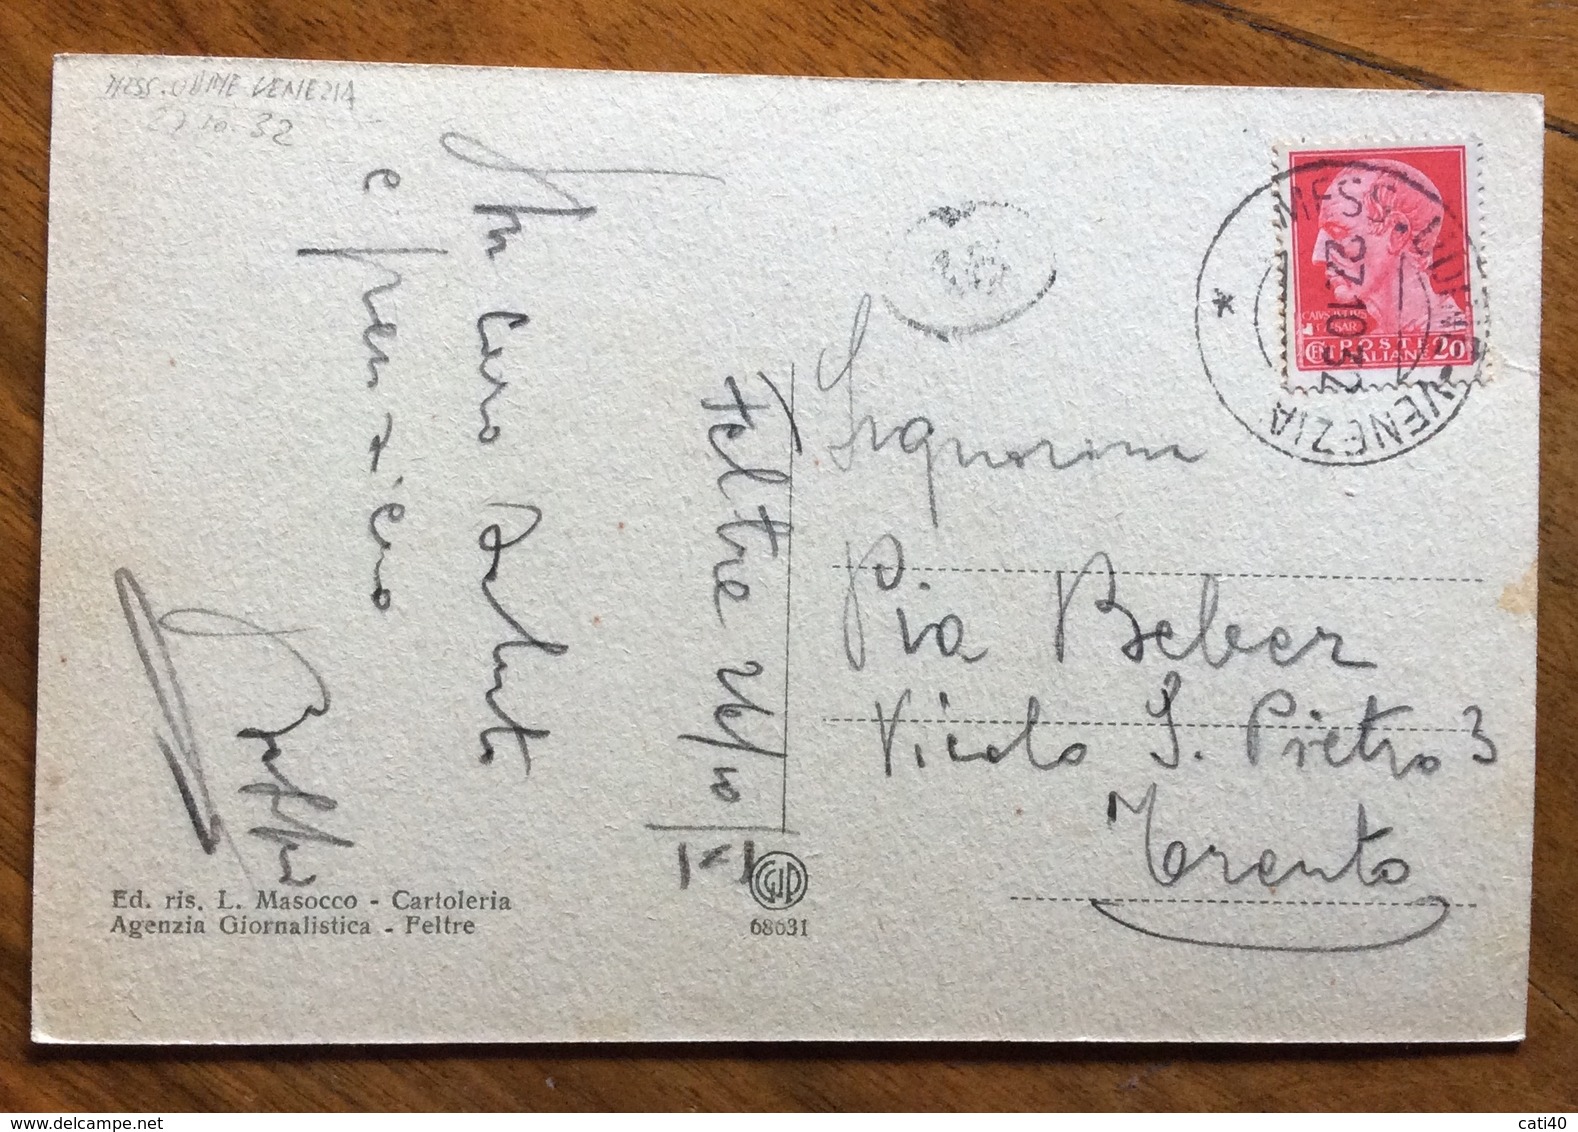 MESS. UDINE VENEZIA
27.10.32
Un caro saluto
e pensiero
Feltre 26/10
MESS. UDINE-VENEZIA
27.10.32
*
CAIVS IVLIVS
CAESAR
POSTE
ITALIANE 20
Signorina
Pia Beber
Vicolo S. Pietro 3
Trento
Ed. ris. L. Masocco - Cartoleria
Agenzia Giornalistica - Feltre
68631
www.delcampe.net
cati40